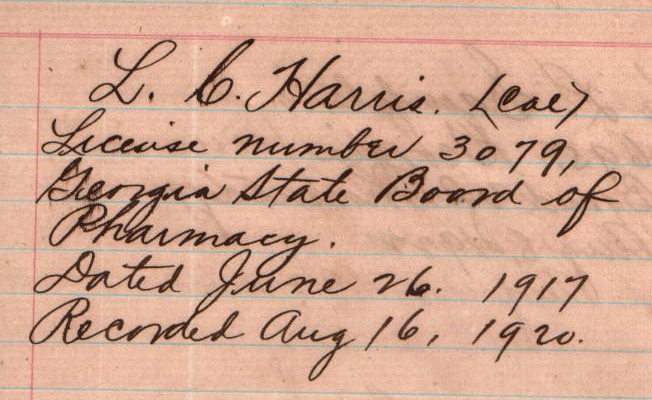 L. C. Harris. (Col)
License number 3079,
Georgia State Board of
Pharmacy.
Dated June 26. 1917
Recorded Aug 16, 1920.